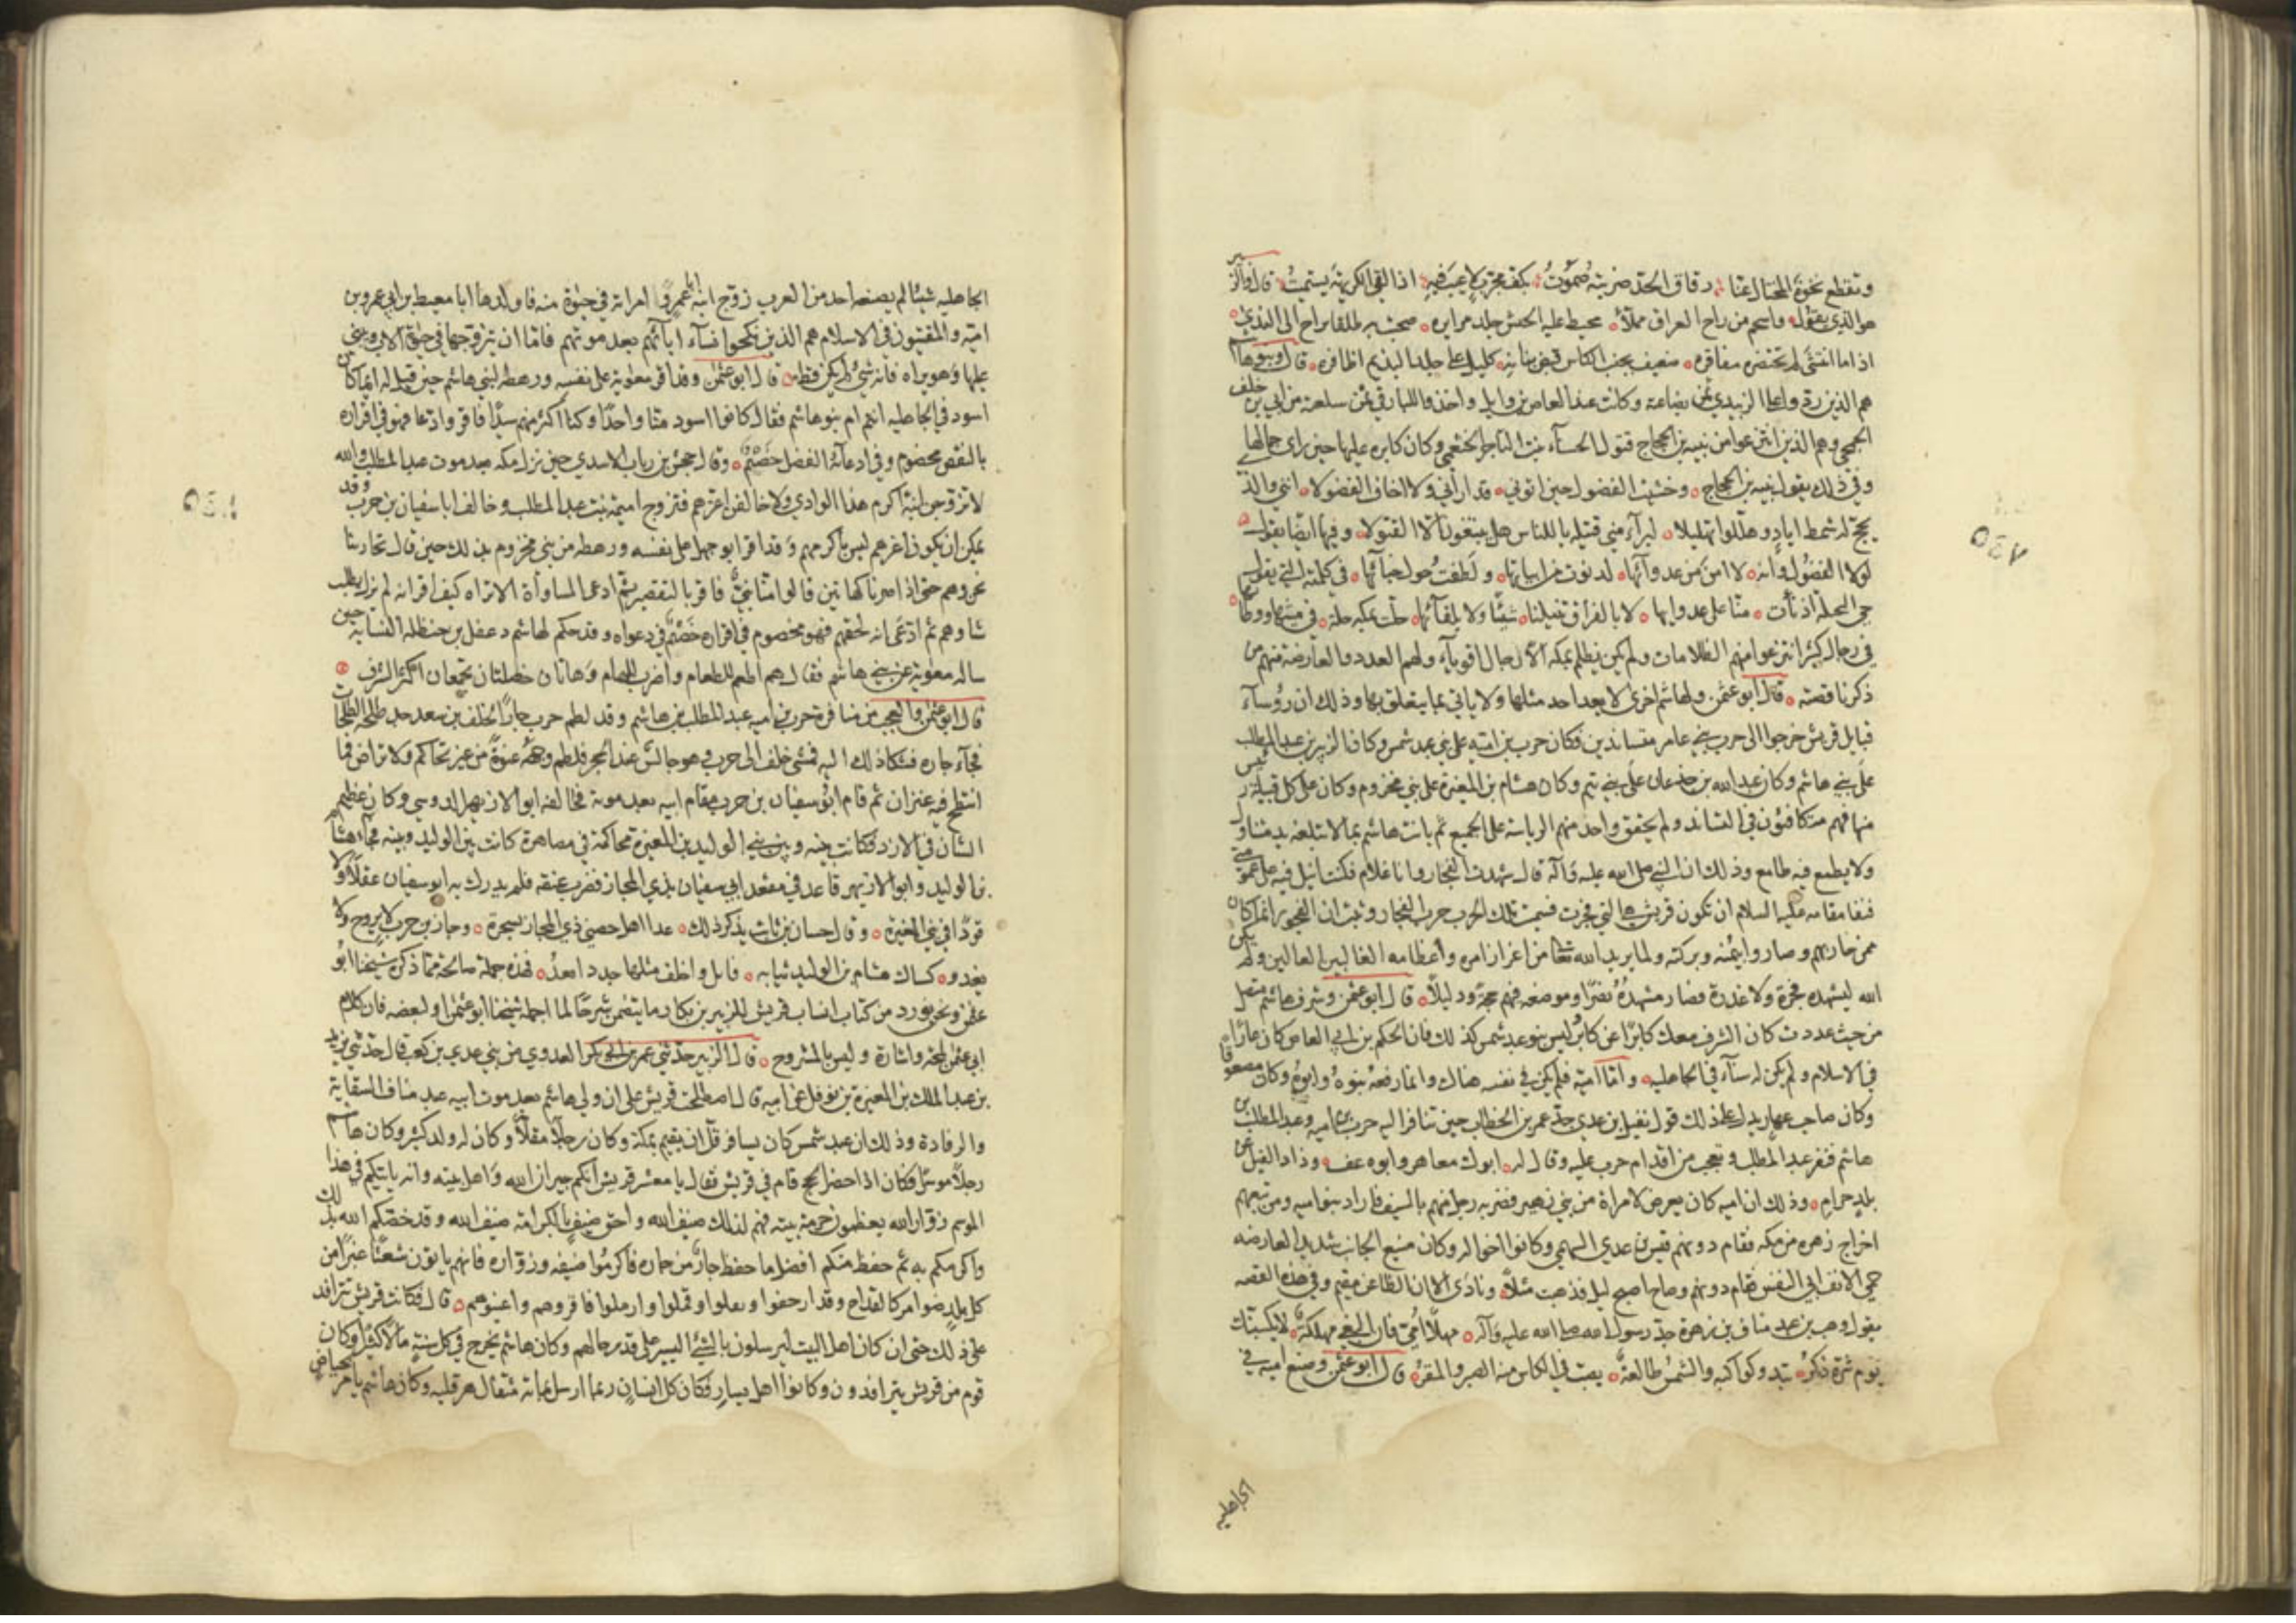 وتقطع نخوة المختال عنا رقاق الحد ضربته صموت بكف مجرب لا عيب فيه اذا لقى الكريهة يستميت قال والزبير
هو الذي يقول واسحم من راح العراق مملأ محيط عليه الجيش جلد مرايره صبحت به طلقا يراح الى الندى
اذا ما انتشى لم تحتضره مفاقره ضعيف بجنب الكاس قبض بنانه كليل على جلد النديم اظافره قال وبنو هاشم
هم الذين ردوا على الزبيدي ثمن بضاعته وكانت عند العاص بن وايل واخذوا للبارقي ثمن سلعته من ابي بن خلف
الجمحي وهم الذين انتزعوا من نبيه بن الحجاج قتول الحسناء بنت التاجر الخثعمي وكان كابره عليها حين راى جمالها
وفي ذلك يقول نبيه بن الحجاج وخشيت الفضول حين اتوني قد اراني ولا اخاف الفضولا اني والذي
يحج له شمط اياد وهللوا تهليلا لبرآء مني قتيلة يا للناس هل يتبغون الا القتولا وفيها ايضا يقول
لولا الفضول وانه لا امن من عدوآئها لدنوت من ابياتها ولطفت حول خبآئها في كلمته التي يقول فيها
حي النحيلة اذ نأت منا على عدوايها لا بالفراق تنيلنا شيئا ولا بلقآئها حلت بمكة حلة في مشيها ووطائها
في رجال كثير انتزعوا منهم الظلامات ولم يكن يظلم بمكة الا رجال اقوياء ولهم العدد والعارضة منهم من
ذكرنا قصته قال ابو عثمن ولهاشم اخرى لا يعد احد مثلها ولا ياتي بما يتعلق بها وذلك ان رؤسآء
قبايل قريش خرجوا الى حرب بني عامر متساندين فكان حرب بن امية على بني عبد شمس وكان الزبير بن عبد المطلب
على بني هاشم وكان عبد الله بن جذعان على بني تيم وكان هشام بن المغيرة على بني مخزوم وكان على كل قبيلة رئيس
منها فهم متكافئون في التساند ولم يحقق واحد منهم الرياسة على الجميع ثم بانت هاشم بما لا تبلغه يد متناول
ولا يطمع فيه طامع وذلك ان النبي صلى الله عليه وآله قال شهدت الفجار وانا غلام فكنت انبل فيه على عمومتي
فنفا مقامه عليه السلام ان تكون قريش هي التي فجرت فسميت تلك الحرب حرب الفجار وثبت ان الفجور انما كان
ممن حاربهم وصاروا بيمنه وبركته ولما يريد الله تعالى من اعزاز امره واعظامه الغالبين العالين ولم يكن
الله ليشهده فجرة ولا غدرة فصار مشهده نصرا وموضعه فيهم حجة ودليلا قال ابو عثمن وشرف هاشم متصل
من حيث عددت كان الشرف معك كابرا عن كابر وليس بنو عبد شمس كذلك فان الحكم بن ابي العاص كان عاريا
في الاسلام ولم يكن له سنآء في الجاهلية واما امية فلم يكن في نفسه هناك وانما رفعه بنوه وابوه وكان مضعوفا
وكان صاحب عهار يدل على ذلك قول نفيل بن عدي جد عمر بن الخطاب حين تنافر اليه حرب بن امية وعبد المطلب بن
هاشم فنفر عبد المطلب وتعجب من اقدام حرب عليه وقال له ابوك معاهر وابوه عف وذاد الفيل عن
بلد حرام وذلك ان امية كان يعرض لامراة من بني زهير فضربه رجل منهم بالسيف فاراد بنو امية ومن تبعهم
اخراج زهرة من مكه فقام دونهم قيس بن عدي السهمي وكانوا اخواله وكان منيع الجانب شديد العارضة
حمي الانف ابي النفس فقام دونهم وصاح اصبح ليل فذهبت مثلا ونادى الا ان الظاعن مقيم وفي هذه القصة
يقول وهب بن عبد مناف بن زهرة جد رسول الله صلى الله عليه وآله مهلا امي فان البغي مهلكة لا يكسبنك
يوم شره ذكر تبدو كواكبه والشمس طالعة يصب في الكاس منه الصبر والمقر قال ابو عثمن وصنع امية في
الجاهلية
الجاهلية شيئا لم يصنعه احد من العرب زوج ابنه ابا عمرو امراته في حياة منه فاولدها ابا معيط بن ابي عمرو بن
امية والمقتيون في الاسلام هم الذين نكحوا نسآء ابآئهم بعد موتهم فاما ان يتزوجها في حياة الاب ويبني
عليها وهو يراه فانه شي لم يكن قط قال ابو عثمن وقد اقر معوية على نفسه ورهطه لبني هاشم حين قيل له ايما كان
اسود في الجاهلية انتم ام بنو هاشم فقال كانوا اسود منا واحدا وكنا اكثر منهم سيدا فاقر وادعا فهو في اقراره
بالنقص مخصوم وفي ادعآئه الفضل خصيم وقال جحش بن رباب الاسدي حين نزل مكه بعد موت عبد المطلب والله
لاتزوجن ابنة اكرم هذا الوادي ولاحالفن اعزهم فتزوج اميمة بنت عبد المطلب وحالف ابا سفيان بن حرب وقد
يمكن ان يكون اعزهم ليس باكرمهم وقد اقر ابو جهل على نفسه ورهطه من بني مخزوم بذلك حين قال تحاربنا
نحن وهم حتى اذا صرنا كهاتين قالوا منا نبي فاقر بالتقصير ثم ادعى المساواة الا تراه كيف اقر انه لم يزل يطلب
شاوهم ثم ادعى انه لحقهم فهو مخصوم في اقراره خصيم في دعواه وقد حكم لهاشم دغفل بن حنظلة النسابة حين
ساله معوية عن بني هاشم فقال هم اطعم للطعام واضرب للهام وهاتان خصلتان يجمعان اكثر الشرف
قال ابو عثمن والعجب من منافرة حرب بن امية عبد المطلب بن هاشم وقد لطم حرب جارا لخلف بن سعد جد طلحة الطلحات
فجآء جاره فشكا ذلك اليه فمشى خلف الى حرب وهو جالس عند الحجر فلطم وجهه عنوة من غير تحاكم ولا تراض فما
انتطح فيه عنزان ثم قام ابو سفيان بن حرب مقام ابيه بعد موته فحالفه ابو الازيهر الدوسي وكان عظيم
الشان في الازد فكانت بينه وبين بني الوليد بن المغيرة محاكمة في مصاهرة كانت بين الوليد وبينه فجآءه هشام
بن الوليد وابو الازيهر قاعد في مقعد ابي سفيان بذي المجاز فضرب عنقه فلم يدرك به ابو سفيان عقلا ولا
قودا في بني المغيرة وقال حسان بن ثابت يذكر ذلك غدا اهل حصني ذي المجاز بسحرة وجار بن حرب لا يروح ولا
يغدو كساك هشام بن الوليد ثيابه فابل واخلف مثلها جددا بعد فهذه جملة صالحة مما ذكره شيخنا ابو
عثمن ونحن نورد من كتاب انساب قريش للزبير بن بكار ما يتضمن شرحا لما اجمله شيخنا ابو عثمن او لبعضه فان كلام
ابي عثمن لمحة واشارة وليس بالمشروح قال الزبير حدثني عمر بن ابي بكر العدوي من بني عدي بن كعب قال حدثني يزيد
بن عبد الملك بن المغيرة بن نوفل عن ابيه قال اصطلحت قريش على ان ولي هاشم بعد موت ابيه عبد مناف السقاية
والرفادة وذلك ان عبد شمس كان يسافر قل ان يقيم بمكة وكان رجلا مقلا وكان له ولد كثير وكان هاشم
رجلا موسرا فكان اذا حضر الحج قام في قريش فقال يا معشر قريش انكم جيران الله واهل بيته وانه ياتيكم في هذا
الموسم زوار الله يعظمون حرمة بيته فهم لذلك ضيف الله واحق ضيف بالكرامة ضيف الله وقد خصكم الله بذلك
واكرمكم به ثم حفظ منكم افضل ما حفظ جار من جاره فاكرموا ضيفه وزواره فانهم ياتون شعثا غبرا من
كل بلد ضوامر كالقداح وقد ارحفوا وتفلوا وقملوا وارملوا فاقروهم واعينوهم قال فكانت قريش تترافد
على ذلك حتى ان كان اهل البيت ليرسلون بالشئ اليسير على قدر حالهم وكان هاشم يخرج في كل سنة مالا كثيرا وكان
قوم من قريش يترافدون وكانوا اهل يسار فكان كل انسان ربما ارسل بمائة مثقال هرقلية وكان هاشم يامر بحياض